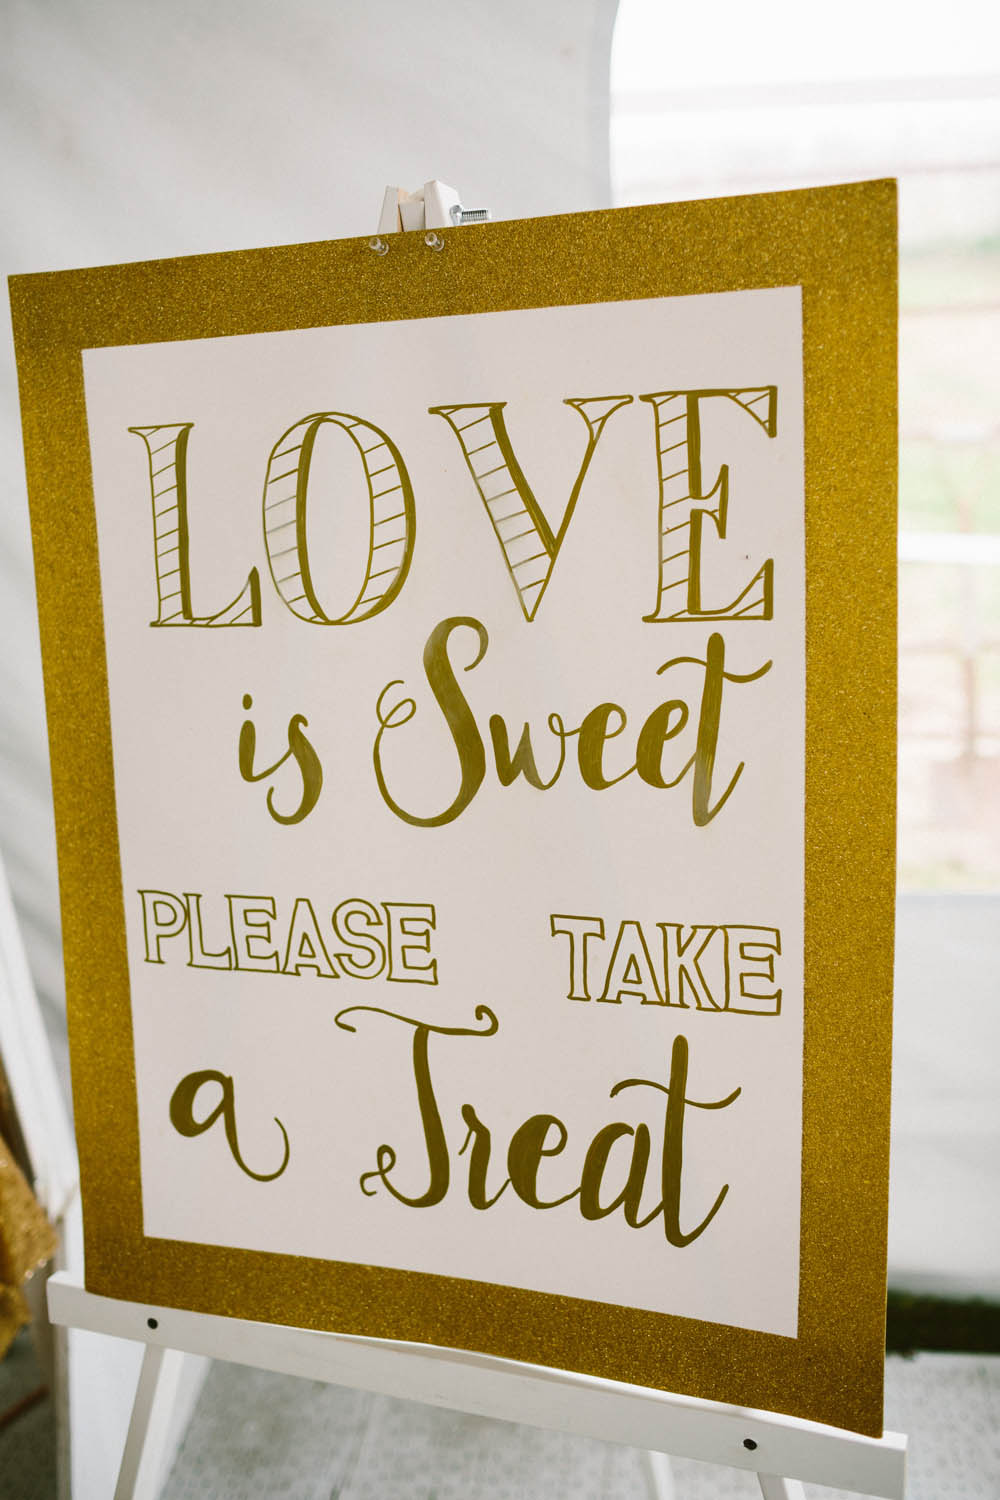 LOVE
is Sweet
PLEASE TAKE
a Treat